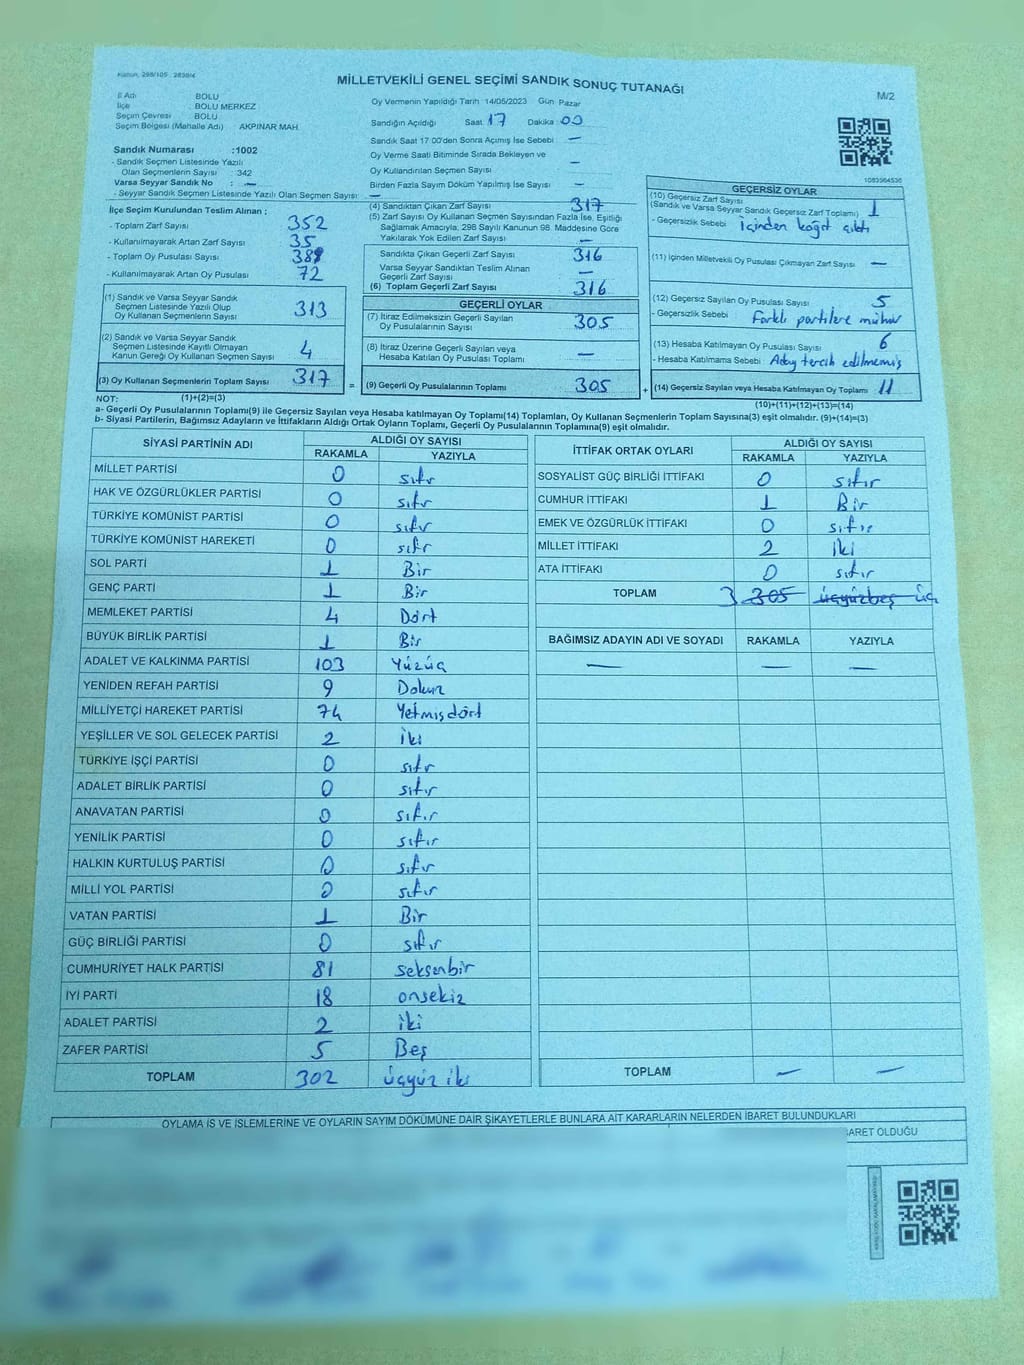 Kanun, 298/105 - 2839/4
MİLLETVEKİLİ GENEL SEÇİMİ SANDIK SONUÇ TUTANAĞI
M/2
İl Adı BOLU
İlçe : BOLU MERKEZ
Seçim Çevresi BOLU
Seçim Bölgesi (Mahalle Adı) AKPINAR MAH.
Oy Vermenin Yapıldığı Tarih 14/05/2023 Gün Pazar
Sandığın Açıldığı Saat 17 Dakika 00
Sandık Saat 17 00'den Sonra Açılmış İse Sebebi —
Oy Verme Saati Bitiminde Sırada Bekleyen ve
Oy Kullandırılan Seçmen Sayısı —
Birden Fazla Sayım Döküm Yapılmış İse Sayısı —
Sandık Numarası :1002
- Sandık Seçmen Listesinde Yazılı
Olan Seçmenlerin Sayısı : 342
Varsa Seyyar Sandık No : —
- Seyyar Sandık Seçmen Listesinde Yazılı Olan Seçmen Sayısı —
1083564536
İlçe Seçim Kurulundan Teslim Alınan ;
- Toplam Zarf Sayısı 352
- Kullanılmayarak Artan Zarf Sayısı 35
- Toplam Oy Pusulası Sayısı
- Kullanılmayarak Artan Oy Pusulası 72
(1) Sandık ve Varsa Seyyar Sandık
Seçmen Listesinde Yazılı Olup
Oy Kullanan Seçmenlerin Sayısı 313
(2) Sandık ve Varsa Seyyar Sandık
Seçmen Listesinde Kayıtlı Olmayan
Kanun Gereği Oy Kullanan Seçmen Sayısı 4
(3) Oy Kullanan Seçmenlerin Toplam Sayısı 317
(4) Sandıktan Çıkan Zarf Sayısı 317
(5) Zarf Sayısı Oy Kullanan Seçmen Sayısından Fazla İse, Eşitliği
Sağlamak Amacıyla, 298 Sayılı Kanunun 98. Maddesine Göre
Yakılarak Yok Edilen Zarf Sayısı —
Sandıkta Çıkan Geçerli Zarf Sayısı 316
Varsa Seyyar Sandıktan Teslim Alınan
Geçerli Zarf Sayısı —
(6) Toplam Geçerli Zarf Sayısı 316
GEÇERLİ OYLAR
(7) İtiraz Edilmeksizin Geçerli Sayılan
Oy Pusulalarının Sayısı 305
(8) İtiraz Üzerine Geçerli Sayılan veya
Hesaba Katılan Oy Pusulası Toplamı —
= (9) Geçerli Oy Pusulalarının Toplamı 305
GEÇERSİZ OYLAR
(10) Geçersiz Zarf Sayısı
(Sandık ve Varsa Seyyar Sandık Geçersiz Zarf Toplamı) 1
- Geçersizlik Sebebi içinden kağıt çıktı
(11) İçinden Milletvekili Oy Pusulası Çıkmayan Zarf Sayısı —
(12) Geçersiz Sayılan Oy Pusulası Sayısı 5
- Geçersizlik Sebebi farklı partilere mühür
(13) Hesaba Katılmayan Oy Pusulası Sayısı 6
- Hesaba Katılmama Sebebi Aday tercih edilmemiş
+ (14) Geçersiz Sayılan veya Hesaba Katılmayan Oy Toplamı 11
NOT: (1)+(2)=(3)
(10)+(11)+(12)+(13)=(14)
a- Geçerli Oy Pusulalarının Toplamı(9) ile Geçersiz Sayılan veya Hesaba katılmayan Oy Toplamı(14) Toplamları, Oy Kullanan Seçmenlerin Toplam Sayısına(3) eşit olmalıdır. (9)+(14)=(3)
b- Siyasi Partilerin, Bağımsız Adayların ve İttifakların Aldığı Ortak Oyların Toplamı, Geçerli Oy Pusulalarının Toplamına(9) eşit olmalıdır.
SİYASİ PARTİNİN ADI ALDIĞI OY SAYISI
RAKAMLA YAZIYLA
MİLLET PARTİSİ 0 sıfır
HAK VE ÖZGÜRLÜKLER PARTİSİ 0 sıfır
TÜRKİYE KOMÜNİST PARTİSİ 0 sıfır
TÜRKİYE KOMÜNİST HAREKETİ 0 sıfır
SOL PARTİ 1 Bir
GENÇ PARTİ 1 Bir
MEMLEKET PARTİSİ 4 Dört
BÜYÜK BİRLİK PARTİSİ 1 Bir
ADALET VE KALKINMA PARTİSİ 103 Yüzüç
YENİDEN REFAH PARTİSİ 9 Dokuz
MİLLİYETÇİ HAREKET PARTİSİ 74 Yetmişdört
YEŞİLLER VE SOL GELECEK PARTİSİ 2 iki
TÜRKİYE İŞÇİ PARTİSİ 0 sıfır
ADALET BİRLİK PARTİSİ 0 sıfır
ANAVATAN PARTİSİ 0 sıfır
YENİLİK PARTİSİ 0 sıfır
HALKIN KURTULUŞ PARTİSİ 0 sıfır
MİLLİ YOL PARTİSİ 0 sıfır
VATAN PARTİSİ 1 Bir
GÜÇ BİRLİĞİ PARTİSİ 0 sıfır
CUMHURİYET HALK PARTİSİ 81 seksenbir
İYİ PARTİ 18 onsekiz
ADALET PARTİSİ 2 iki
ZAFER PARTİSİ 5 Beş
TOPLAM 302 üçyüz iki
İTTİFAK ORTAK OYLARI ALDIĞI OY SAYISI
RAKAMLA YAZIYLA
SOSYALİST GÜÇ BİRLİĞİ İTTİFAKI 0 sıfır
CUMHUR İTTİFAKI 1 Bir
EMEK VE ÖZGÜRLÜK İTTİFAKI 0 sıfır
MİLLET İTTİFAKI 2 iki
ATA İTTİFAKI 0 sıfır
TOPLAM 3 305 üçyüzbeş üç
BAĞIMSIZ ADAYIN ADI VE SOYADI RAKAMLA YAZIYLA
— — —
TOPLAM — —
OYLAMA İŞ VE İŞLEMLERİNE VE OYLARIN SAYIM DÖKÜMÜNE DAİR ŞİKAYETLERLE BUNLARA AİT KARARLARIN NELERDEN İBARET BULUNDUKLARI
BARET OLDUĞU